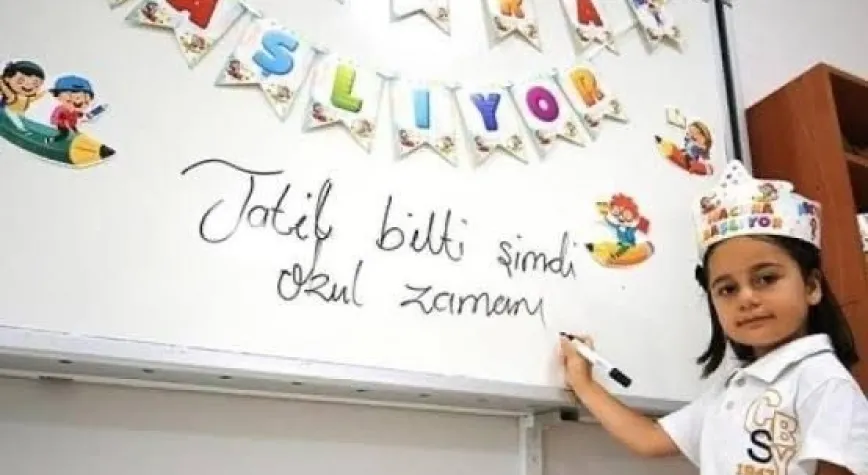 ŞLIYOR
Tatil bitti şimdi
okul zamanı
MACERA
BAŞLIYOR